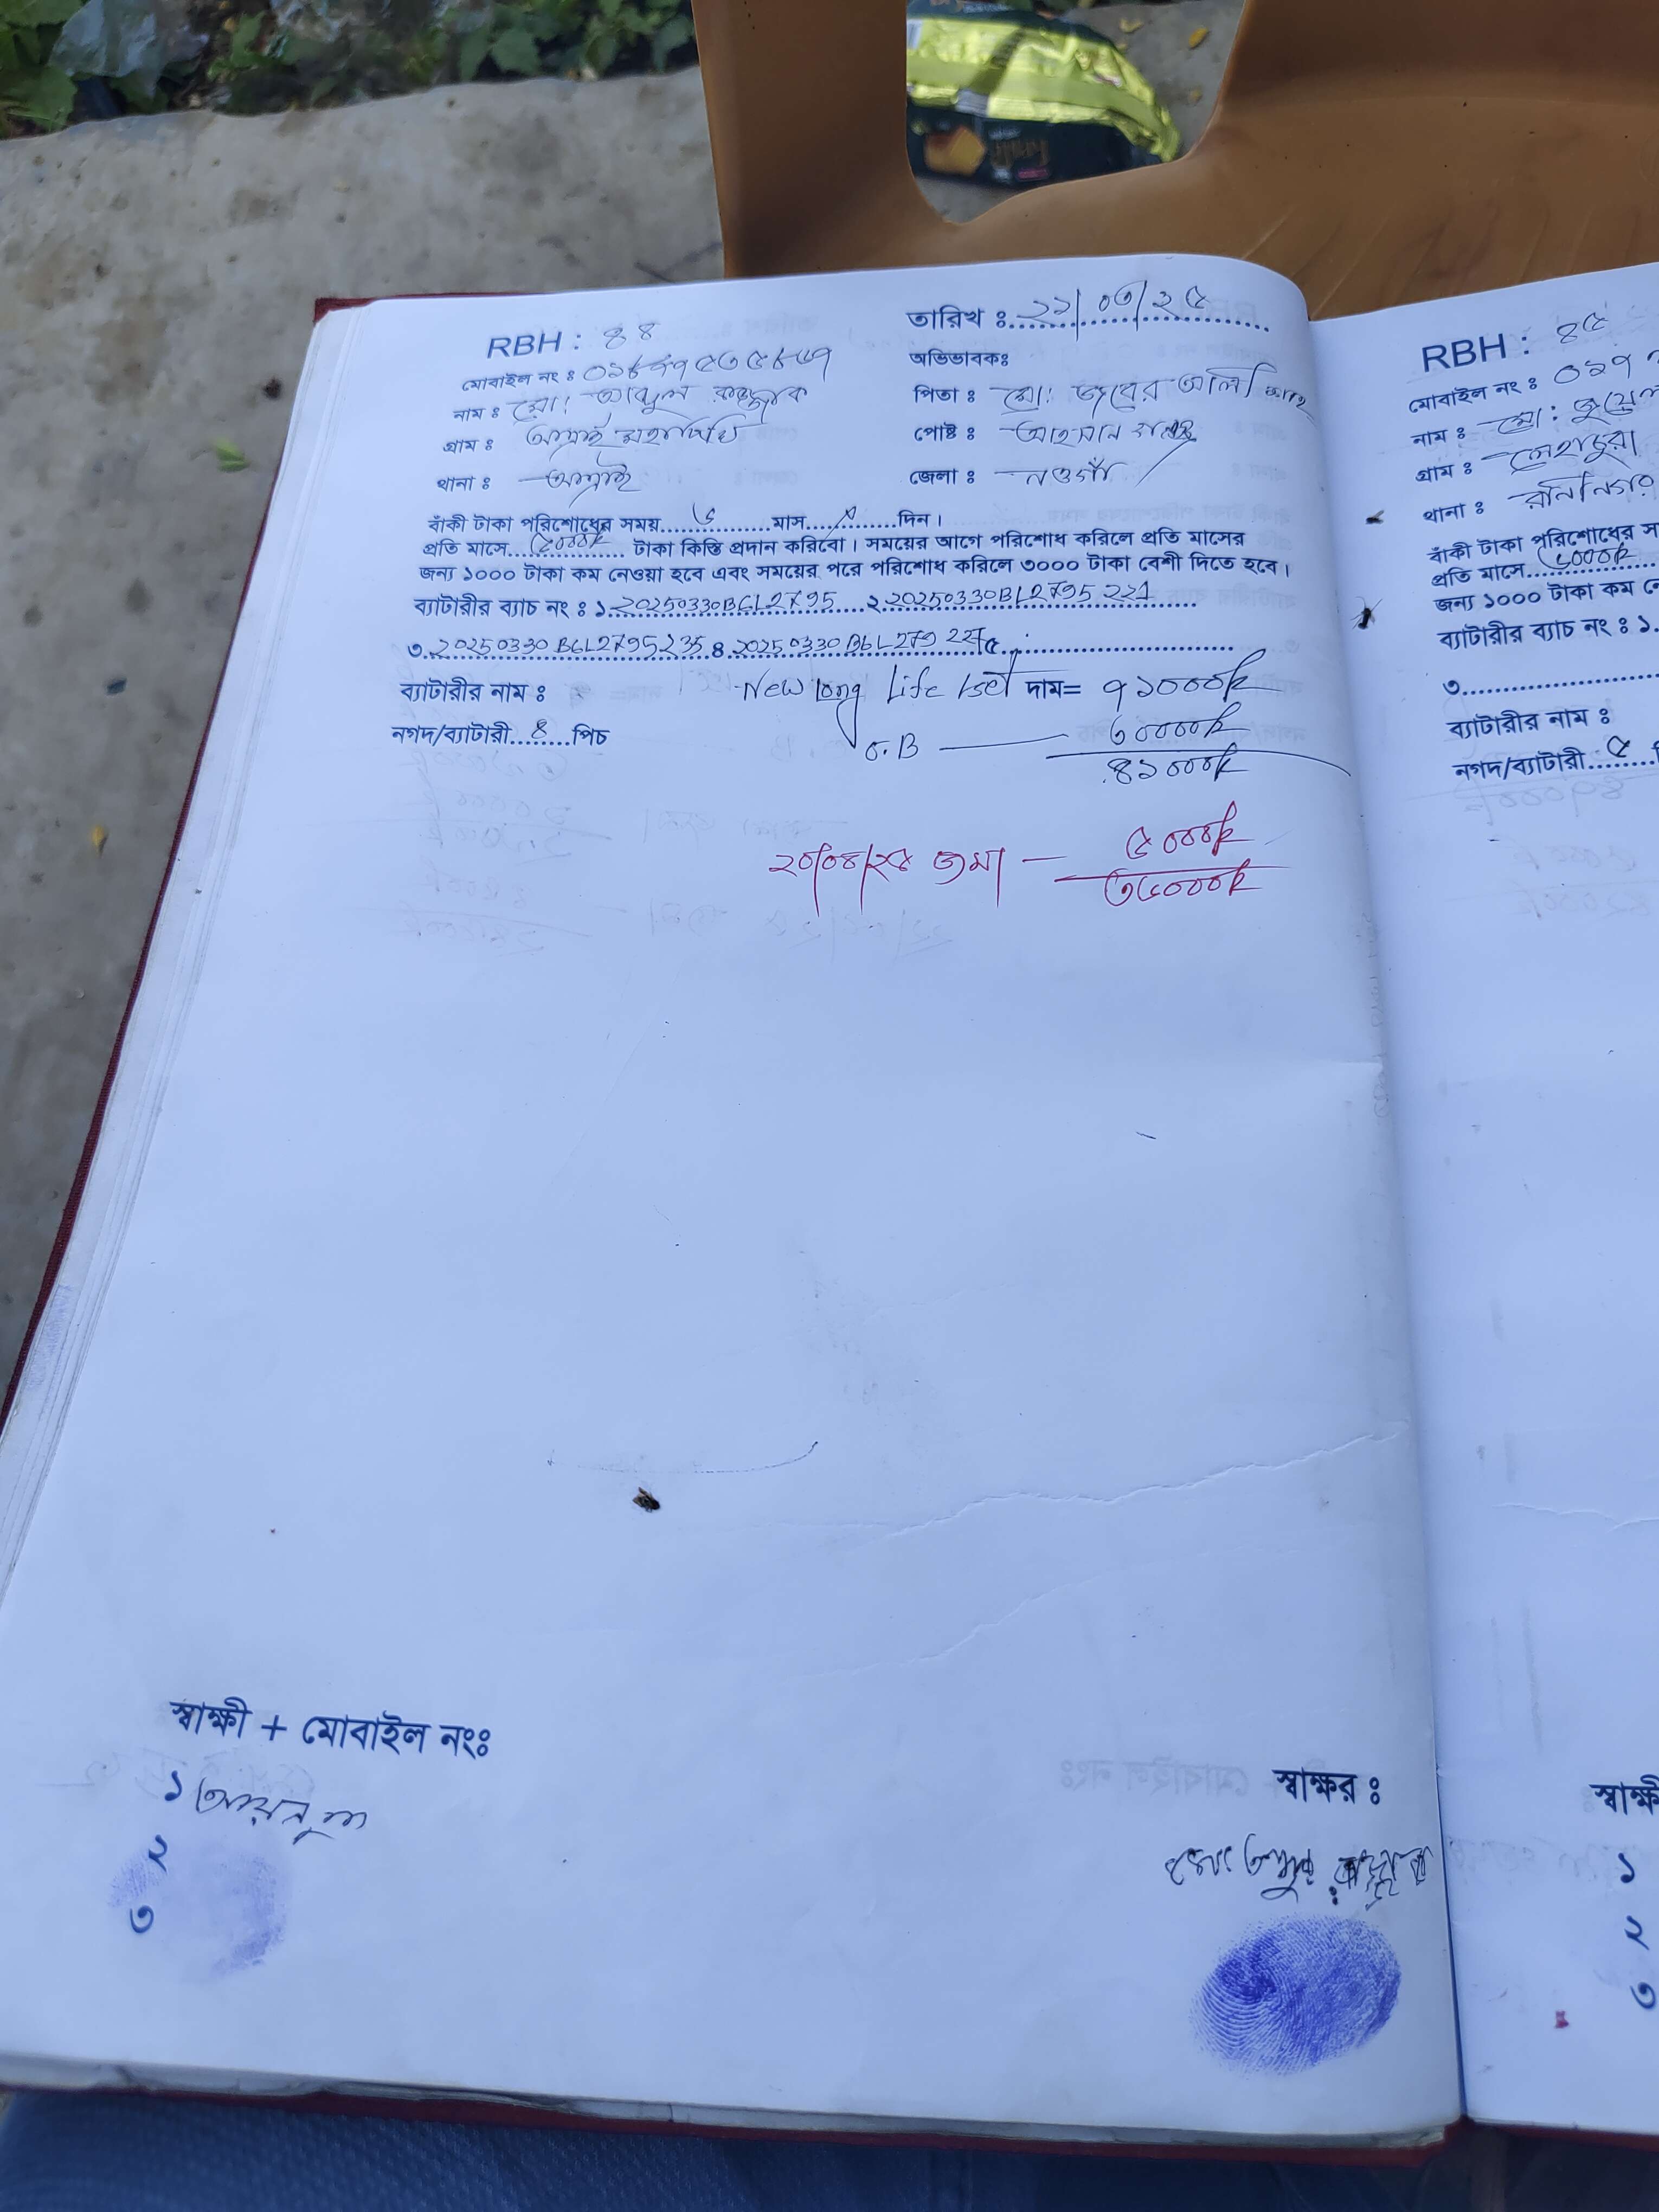 RBH : ৪৪
তারিখ ঃ ২১/০৩/২৫
মোবাইল নং ঃ
অভিভাবকঃ
নাম ঃ মো: আব্দুল রাজ্জাক
পিতা ঃ মো: জবের আলি
গ্রাম ঃ আত্রাই মহাদিঘি
পোষ্ট ঃ আহসান গঞ্জ
থানা ঃ আত্রাই
জেলা ঃ নওগাঁ
বাঁকী টাকা পরিশোধের সময়........৬........মাস....×....দিন।
প্রতি মাসে....৫০০০/=.... টাকা কিস্তি প্রদান করিবো। সময়ের আগে পরিশোধ করিলে প্রতি মাসের
জন্য ১০০০ টাকা কম নেওয়া হবে এবং সময়ের পরে পরিশোধ করিলে ৩০০০ টাকা বেশী দিতে হবে।
ব্যাটারীর ব্যাচ নং ঃ ১.20250330B6L2795....২.20250330BL2795221
৩.20250330B6L2795235.৪.20250330B6L279227৫.
ব্যাটারীর নাম ঃ New long Life 1set দাম= ৭১০০০/=
নগদ/ব্যাটারী..৪..পিচ
O.B — ৩০০০০/=
৪১০০০/=
২০/০৪/২৫ জমা — ৫০০০/=
৩৬০০০/=
স্বাক্ষী + মোবাইল নংঃ
১
২
৩
স্বাক্ষর ঃ
RBH : ৪৫
মোবাইল নং ঃ ০১৭
নাম ঃ মো: জুয়েল
গ্রাম ঃ
থানা ঃ রানিনগর
বাঁকী টাকা পরিশোধের স
প্রতি মাসে....৬০০০/=
জন্য ১০০০ টাকা কম নে
ব্যাটারীর ব্যাচ নং ঃ ১.
৩.
ব্যাটারীর নাম ঃ
নগদ/ব্যাটারী..৫..
স্বাক্ষী
১
২
৩